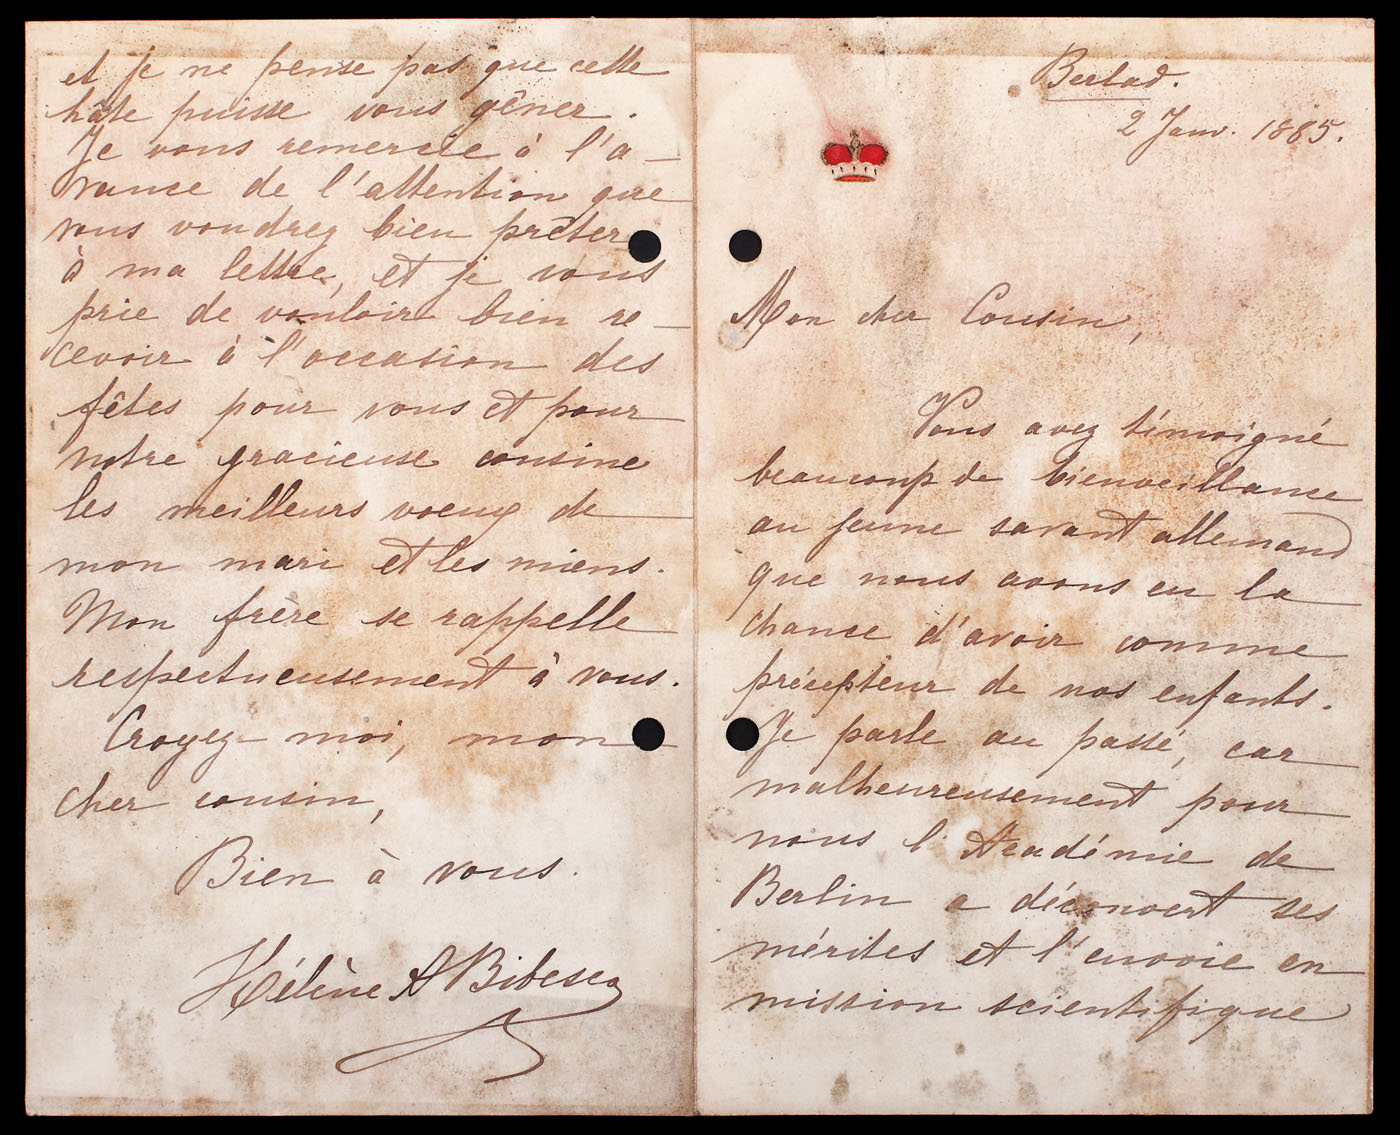 Berlad.
2 Janv. 1885.
Mon cher Cousin,
Vous avez témoigné
beaucoup de bienveillance
au jeune savant allemand
que nous avons eu la
chance d'avoir comme
précepteur de nos enfants.
Je parle au passé, car
malheureusement pour
nous l'Académie de
Berlin a découvert ses
mérites et l'envoie en
mission scientifique
et je ne pense pas que cette
hâte puisse vous gêner.
Je vous remercie à l'a-
vance de l'attention que
vous voudrez bien prêter
à ma lettre, et je vous
prie de vouloir bien re-
cevoir à l'occasion des
fêtes pour vous et pour
notre gracieuse cousine
les meilleurs voeux de
mon mari et les miens.
Mon frère se rappelle
respectueusement à vous.
Croyez-moi, mon
cher cousin,
Bien à vous.
Hélène A Bibesco